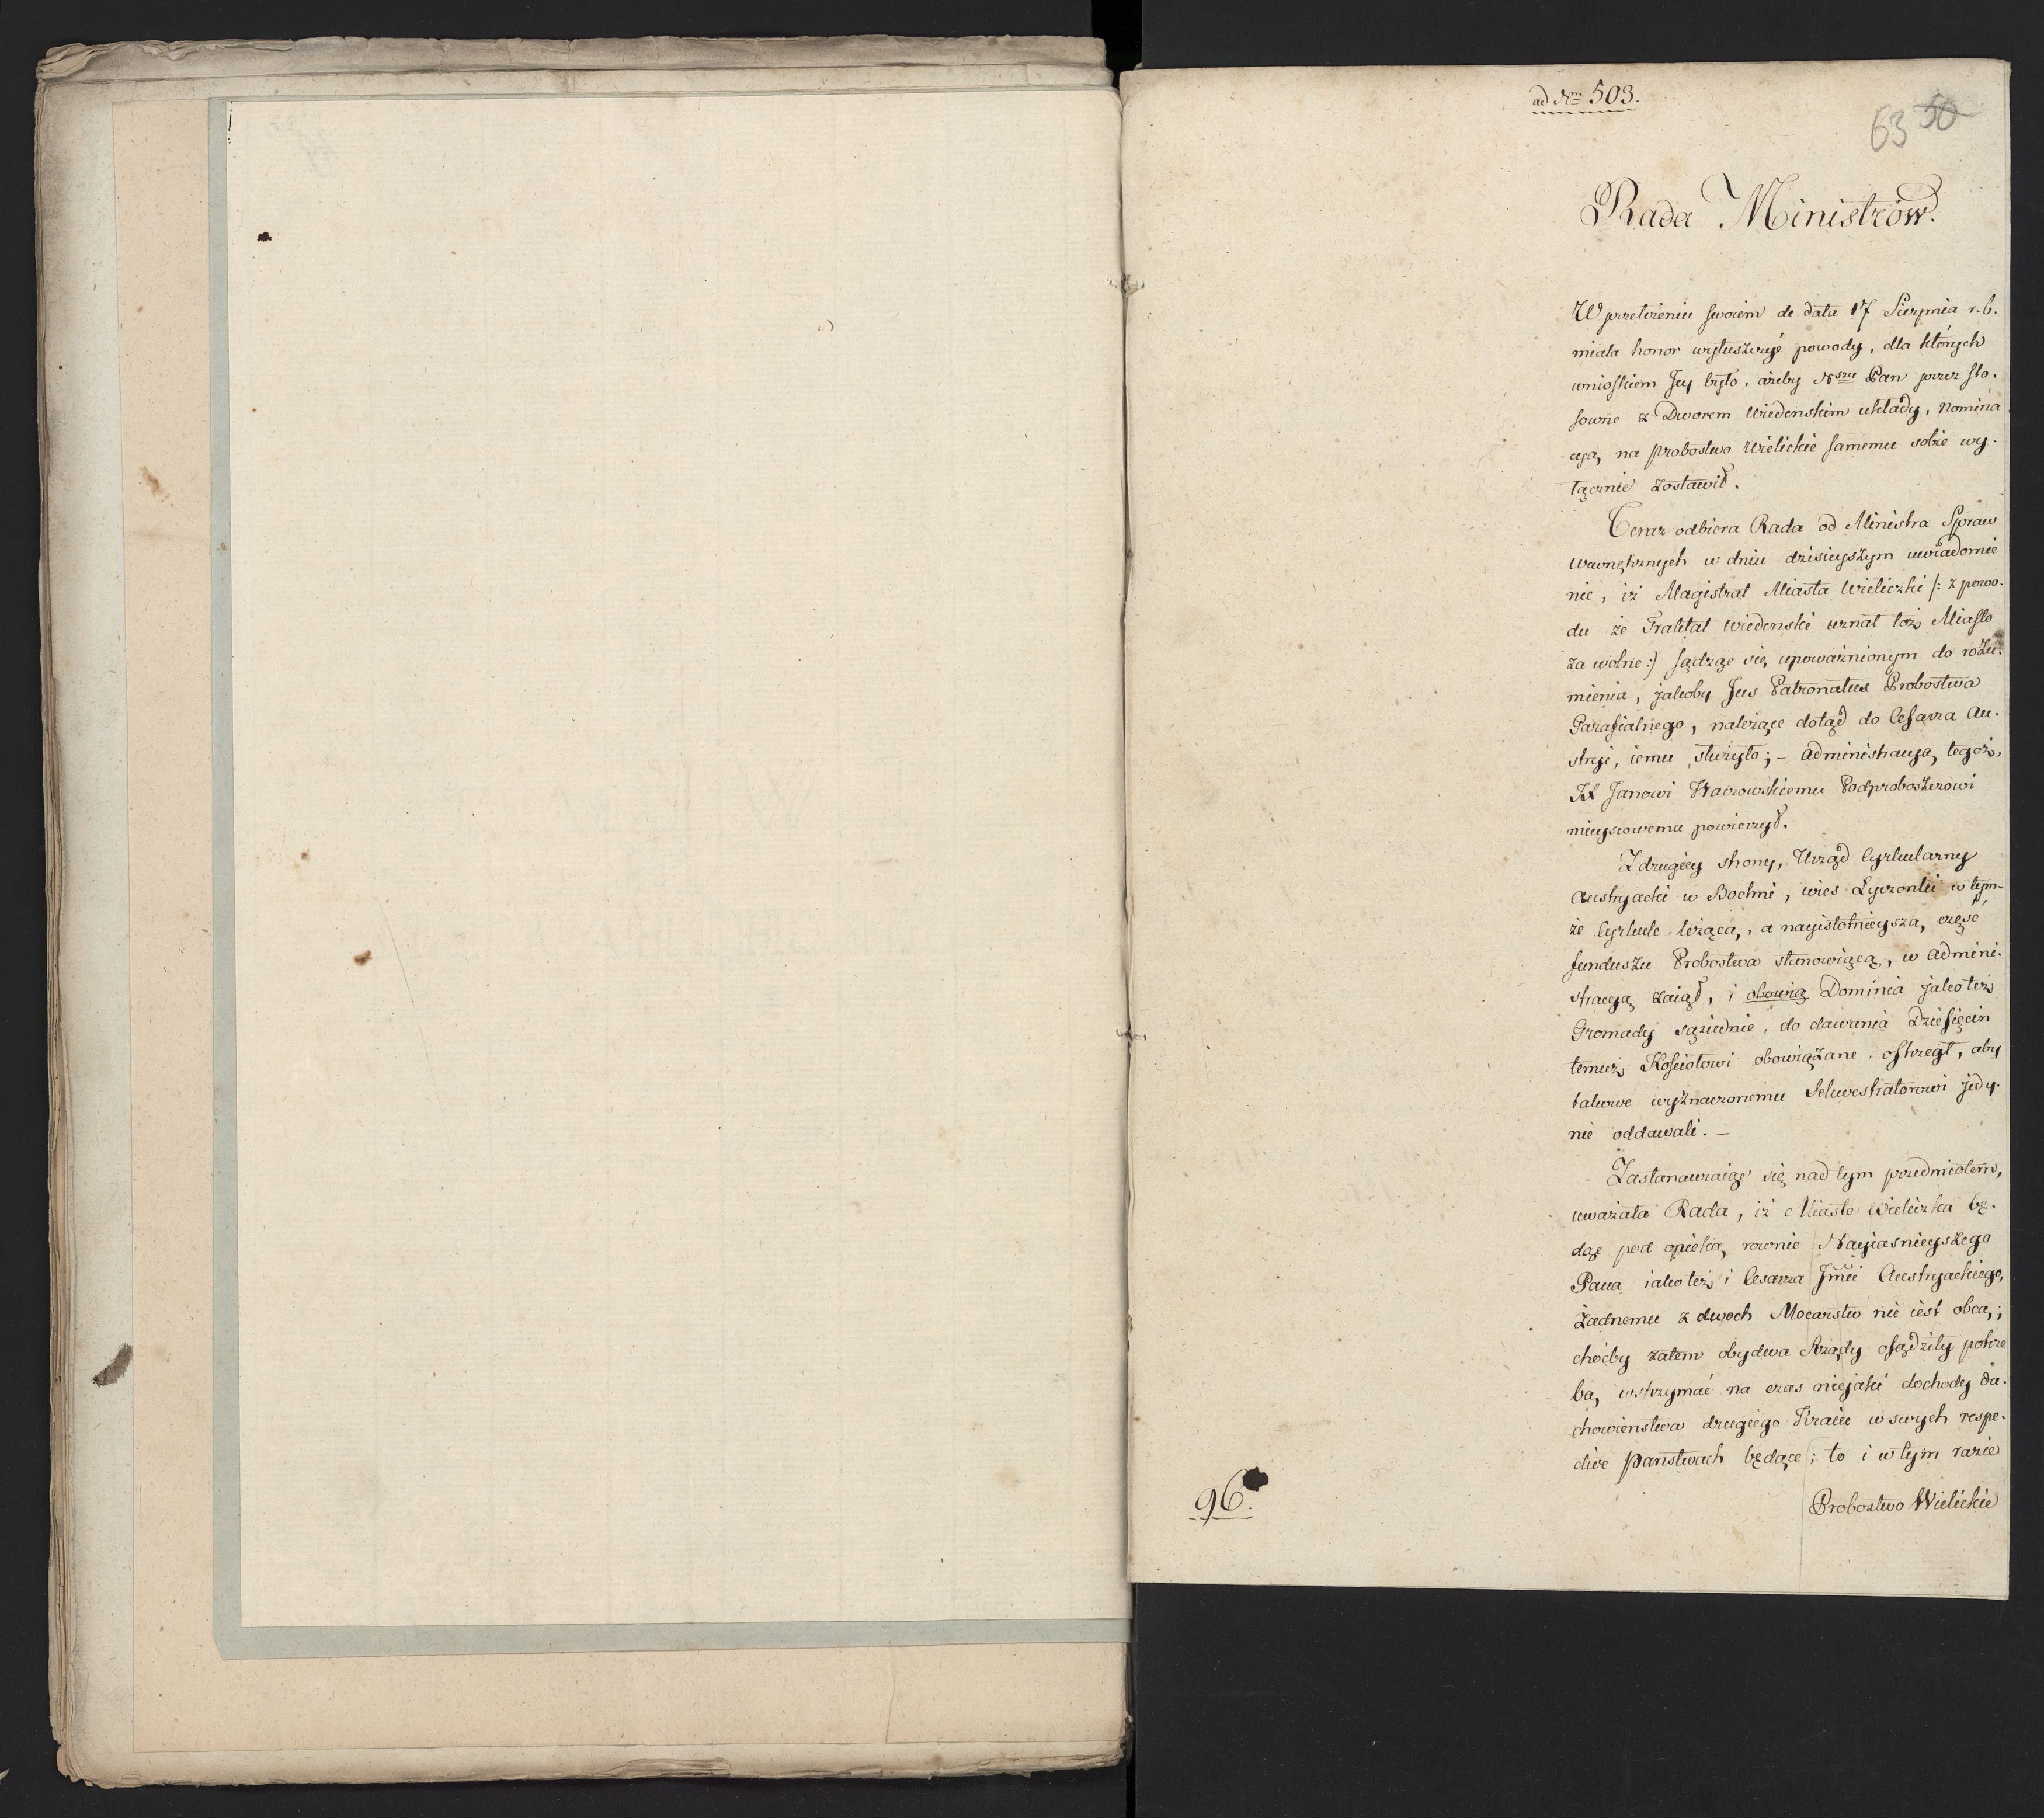 ad Nm 503.
63 50
Rada Ministrów.
W przełożeniu swoiem de data 17 Sierpnia r. b.
miała honor wyłuszczyć powody, dla których
wnioskiem Jey było, ażeby Nszy Pan przez sto-
sowne z Dworem Wiedenskim układy, nomina
cyą na probostwo Wielickie samemu sobie wy-
łącznie zostawił.
Teraz odbiera Rada od Ministra Spraw
Wewnętrznych w dniu dzisieyszym uwiadomie
nie, iż Magistrat Miasta Wieliczki /: z powo-
du że Traktat Wiedenski uznał toż Miasto
za wolne :/ sądząc się upoważnionym do rozu-
mienia, jakoby Jus Patronatus Probostwa
Parafialnego, należące dotąd do Cesarza Au-
stryi, iemu służyło; - administracyą tegoż,
X Janowi Podproboszczowi
mieyscowemu powierzył.
Z drugiey strony, Urząd Cyrkularny
Austryacki w Bochni, wieś Łyczonki w tym-
że Cyrkule leżącą, a nayistotnieyszą część
funduszu Probostwa stanowiącą, w admini-
stracyą zaiął, i obowią Dominia jako też
Gromady sąsiednie, do dawania Dziesięcin
temuż Kościołowi obowiązane, ostrzegł, aby
takowe wyznaczonemu Sekwestratorowi jedy-
nie oddawali. -
Zastanawiaiąc się nad tym przedmiotem,
uważała Rada, iż Miasto Wieliczka bę-
dąc pod opieką, rownie Nayiasnieyszego
Pana iako też i Cesarza Jmci Austryackiego,
żadnemu z dwoch Mocarstw nie iest obcą;
choćby zatem obydwa Rządy osądziły potrze
bą, wstrzymać na czas niejaki dochody du-
chowienstwa drugiego Kraiu w swych respe-
ctive Panstwach będące; to i w tym razie
Probostwo Wielickie
96.